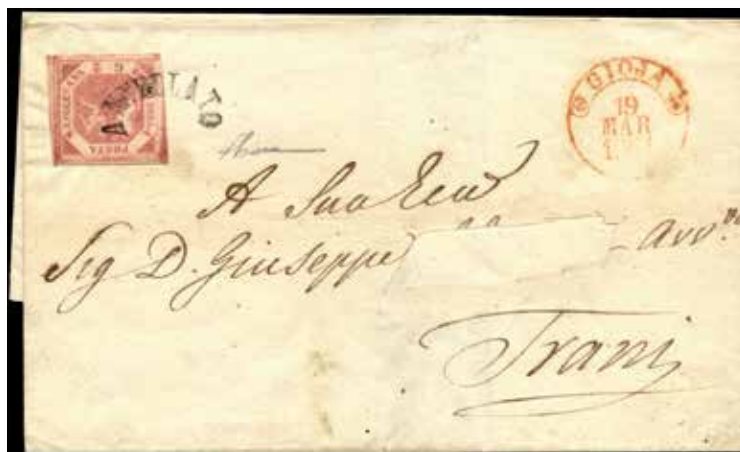 ANNULLATO
POSTA
GIOJA
19
MAR
A Sua Ecc
Sig D. Giuseppe
Avv.
Trani